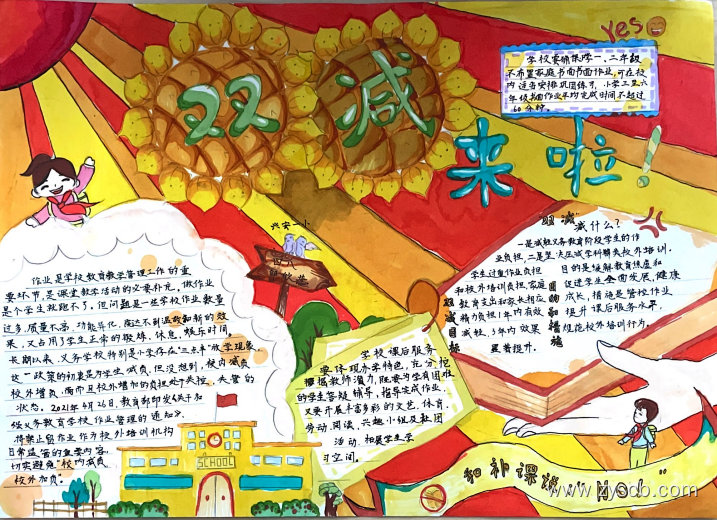 双减
来啦！
yes
学校要确保学一、二年级
不布置家庭书面作业,可在校
内适当安排巩固练习,小学三至六
年级书面作业平均完成时间不超过
60分钟.
兴安一小
作业是学校教育教学管理工作的重
要环节,是课堂教学活动的必要补充。做作业
是个学生就跑不了。但问题是一些学校作业数量
过多,质量不高,功能异化,既达不到温故知新的效
果,又占用了学生正常的锻炼、休息、娱乐时间。
长期以来,义务学校特别是小学存在"三点半"放学现象
这一政策的初衷是为学生减负,但没想到,校内减负
校外增负,而且校外增加的负担处于失控、失管的
状态。2021年4月26日,教育部印发《关于加
强义务教育学校作业管理的通知》,
将禁止留作业作为校外培训机构
日常监管的重要内容,
切实避免"校内减负,
校外加负。"
学校课后服务
要体现办学特色,充分挖
掘教师潜力,既要为学有困难
的学生答疑辅导,指导完成作业,
又要开展丰富多彩的文艺、体育、
劳动、阅读、兴趣小组及社团
活动,拓展学生学
习空间。
双减
减什么?
一是减轻义务教育阶段学生的作
业负担,二是要大压减学科类校外培训.
双减目标
学生过重作业负担
和校外培训负担,家庭
教育支出和家长相应
精力负担1年内有效
减轻,3年内效果
显著提升.
目的和措施
目的是缓解教育焦虑和
促进学生全面发展、健康
成长,措施是管控作业,
提升课后服务水平,
规范校外培训行为.
SCHOOL
和补课班"说NO!"
www.zyscb.com